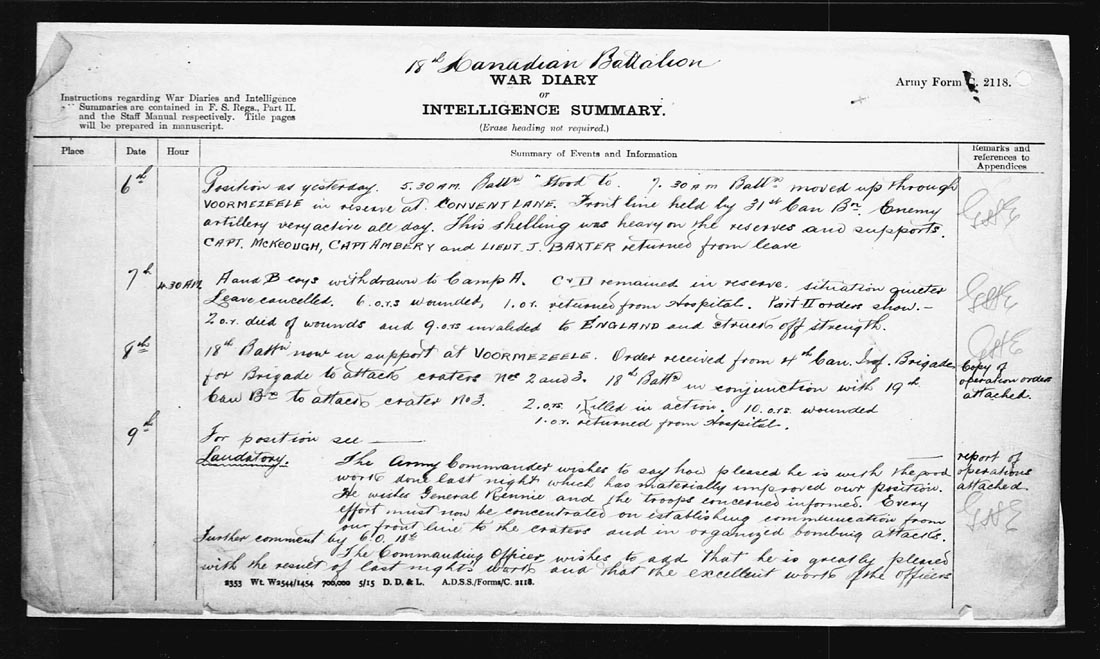 18th Canadian Battalion
WAR DIARY
or
INTELLIGENCE SUMMARY.
(Erase heading not required.)
Army Form C. 2118.
Instructions regarding War Diaries and Intelligence
Summaries are contained in F. S. Regs., Part II.
and the Staff Manual respectively. Title pages
will be prepared in manuscript.
Place
Date
Hour
Summary of Events and Information
Remarks and
references to
Appendices
6th
Position as yesterday. 5.30 A.M. Battn "Stood to. 7.30 AM Battn moved up through
VOORMEZEELE in reserve at CONVENT LANE. Front line held by 31st Can Bn. Enemy
artillery very active all day. This shelling was heavy on the reserves and supports.
CAPT. McKEOUGH, CAPT AMBERY and LIEUT J. BAXTER returned from leave
7th
4.30 AM
A and B coys withdrawn to Camp A. C & D remained in reserve. situation quieter
Leave cancelled. 6. o.r.s wounded, 1. o.r. returned from Hospital. Part II orders show.-
2. o.r. died of wounds and 9. o.r.s invalided to ENGLAND and struck off strength.
8th
18th Battn now in support at VOORMEZEELE. Order received from 4th Can. Inf. Brigade
for Brigade to attack craters Nos 2 and 3. 18th Battn in conjunction with 19th
Can Bn to attack crater No 3. 2. o.r.s. Killed in action. 10. o.r.s. wounded
1. o.r. returned from Hospital.
Copy of
operation orders
attached.
9th
For position see —
report of
operations
attached
Laudatory. The Army Commander wishes to say how pleased he is with the good
work done last night which has materially improved our position.
He wishes General Rennie and the troops concerned informed. Every
effort must now be concentrated on establishing communication from
our front line to the craters and in organized bombing attacks.
Further comment by C.O. 18th
The Commanding Officer wishes to add that he is greatly pleased
with the result of last nights work and that the excellent work of the officers
2353 Wt. W2544/1454 700,000 5/15 D. D. & L. A.D.S.S./Forms/C. 2118.